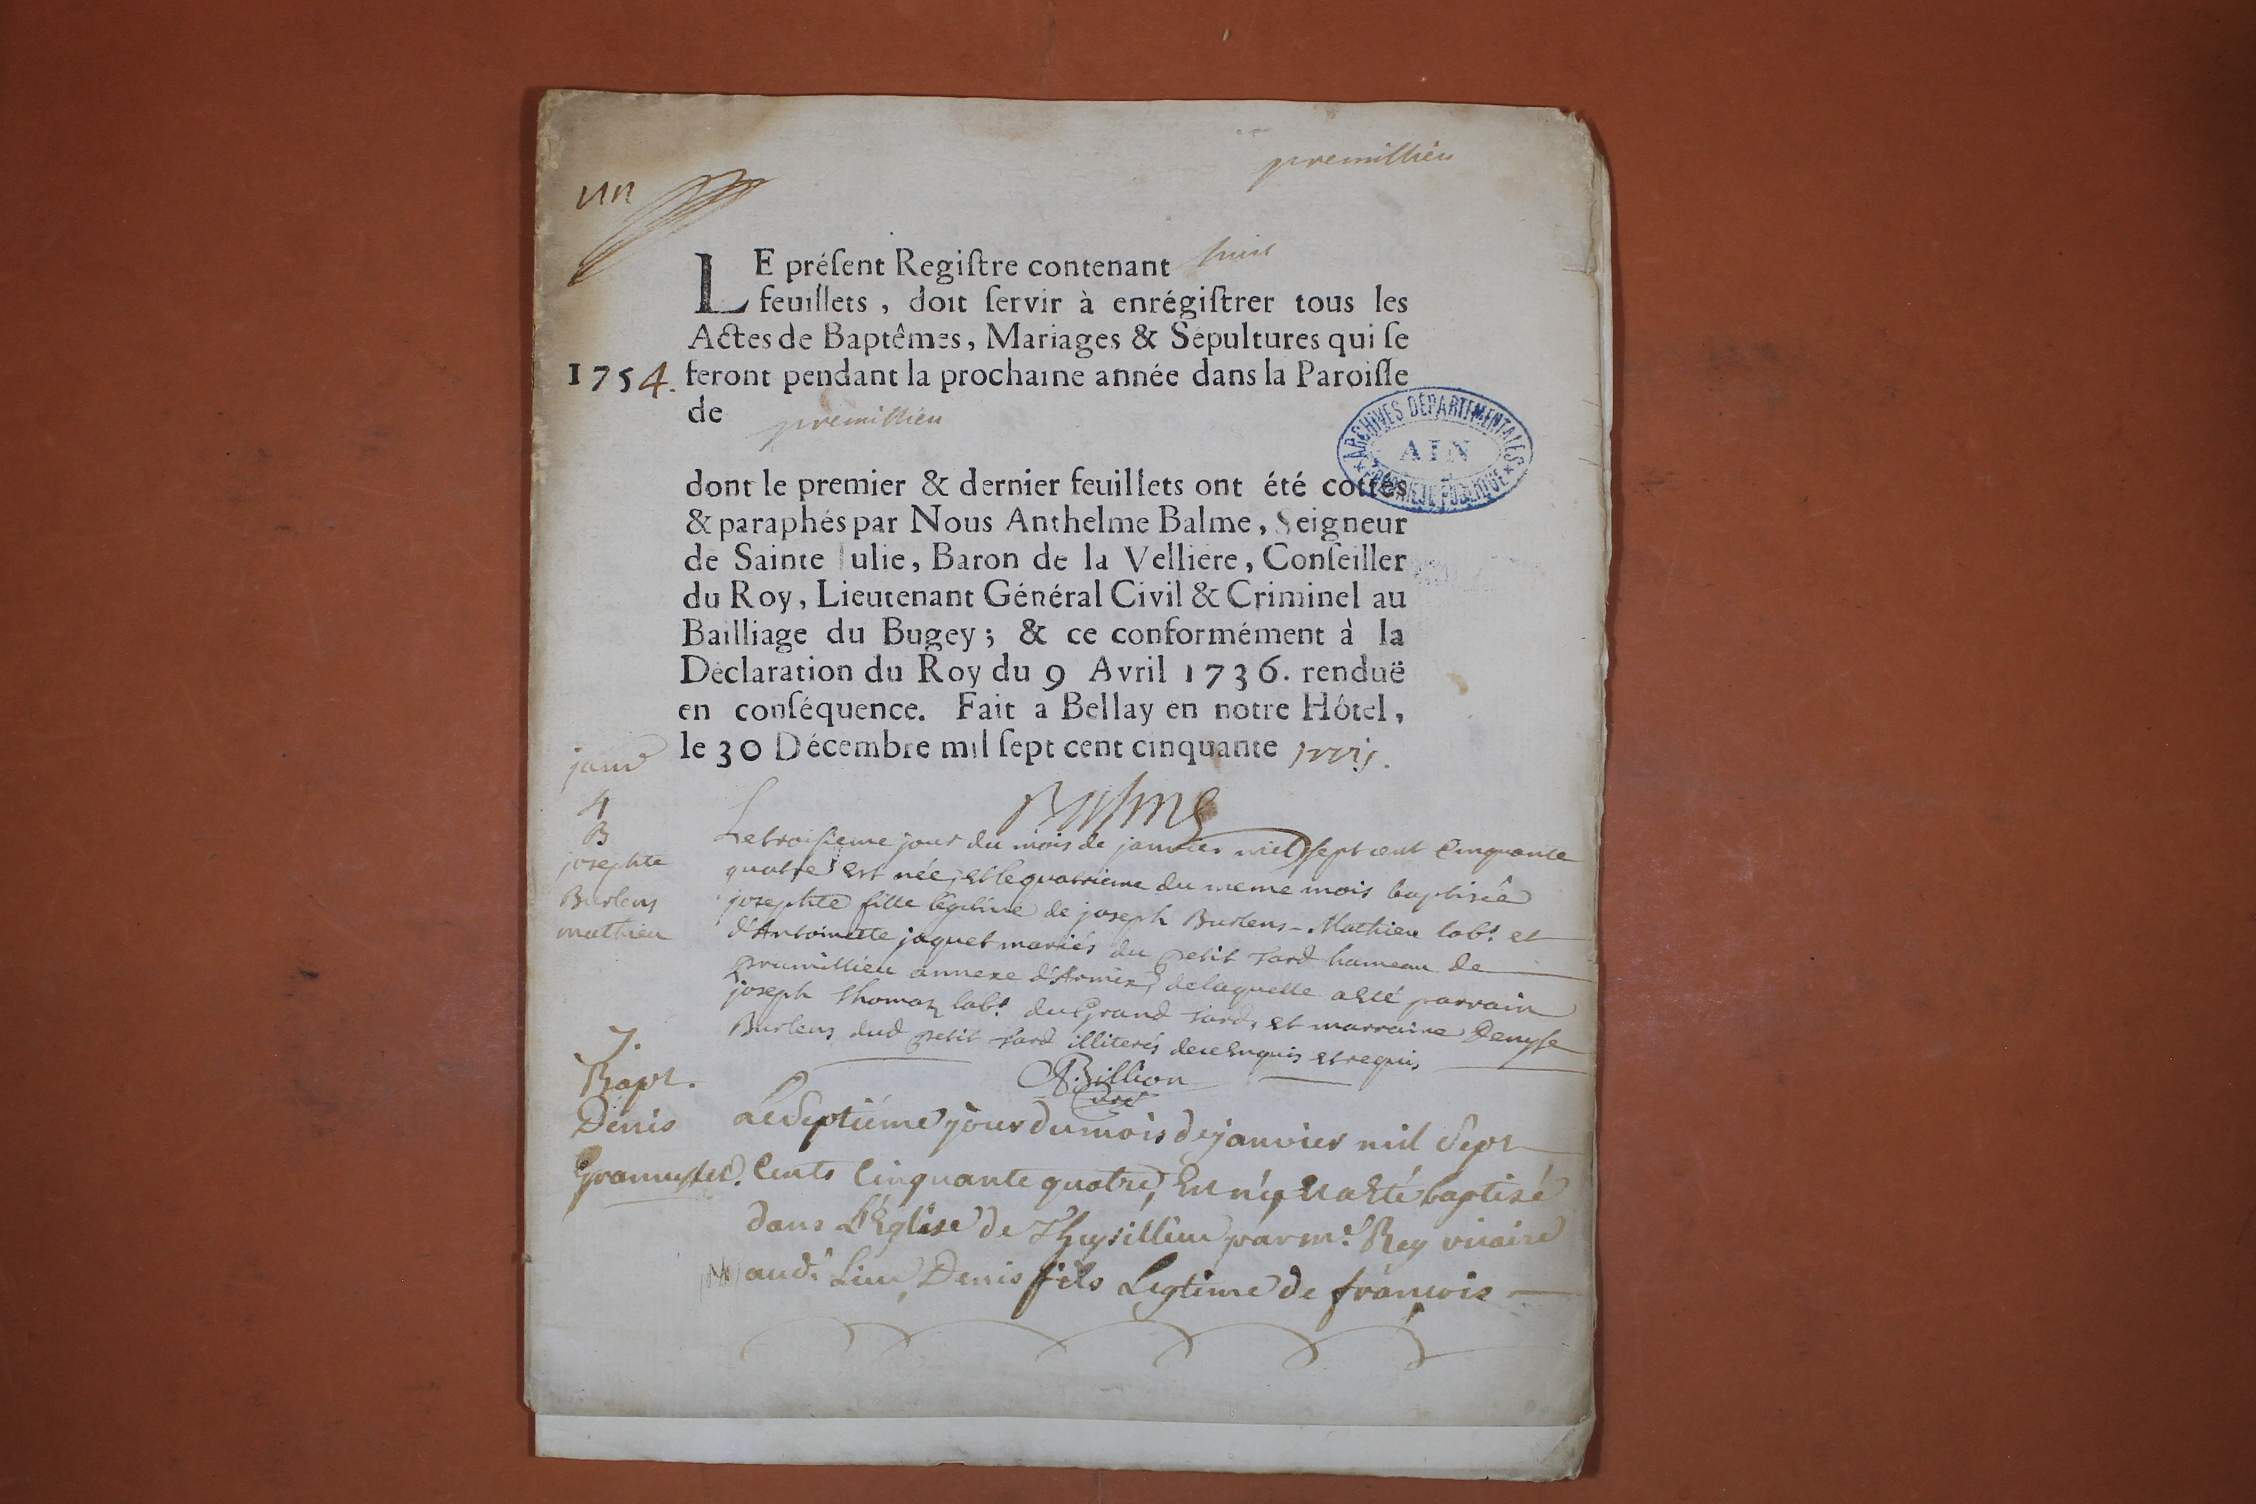 premillieu
un
LE préſent Regiſtre contenant huit
feuillets, doit ſervir à enrégiſtrer tous les
Actes de Baptêmes, Mariages & Sépultures qui ſe
1754. feront pendant la prochaine année dans la Paroiſſe
de premillieu
ARCHIVES DÉPARTEMENTALES
AIN
PROPRIÉTÉ PUBLIQUE
dont le premier & dernier feuillets ont été cottés
& paraphés par Nous Anthelme Balme, Seigneur
de Sainte Julie, Baron de la Velliere, Conſeiller
du Roy, Lieutenant Général Civil & Criminel au
Bailliage du Bugey; & ce conformément à la
Déclaration du Roy du 9 Avril 1736. renduë
en conſéquence. Fait a Bellay en notre Hôtel,
le 30 Décembre mil ſept cent cinquante trois.
Balme
janv
4
B
josephte
Burlens
mathieu
Le troisieme jour du mois de janvier mil sept cent cinquante
quatre est née, et le quatrieme du meme mois baptisée
josephte fille légitime de joseph Burlens-Mathieu lab.r et
d'Antoinette jaquet mariés du petit Tard hameau de
prumillieu annexe d'Armix, de laquelle a esté parrain
joseph Thomaz lab.r du Grand Tard, et marraine Denyse
Burlens dud petit Tard illiterés de ce enquis et requis
Billion
Curé
7.
Bapt.
Denis
Le Septiéme jour du mois de janvier mil Sept
Cents Cinquante quatre, Est né, Et a Esté baptizé
dans L'Eglise de Thezillieu par m.e Rey vicaire
aud. Lieu, Denis fils Legtime de francois